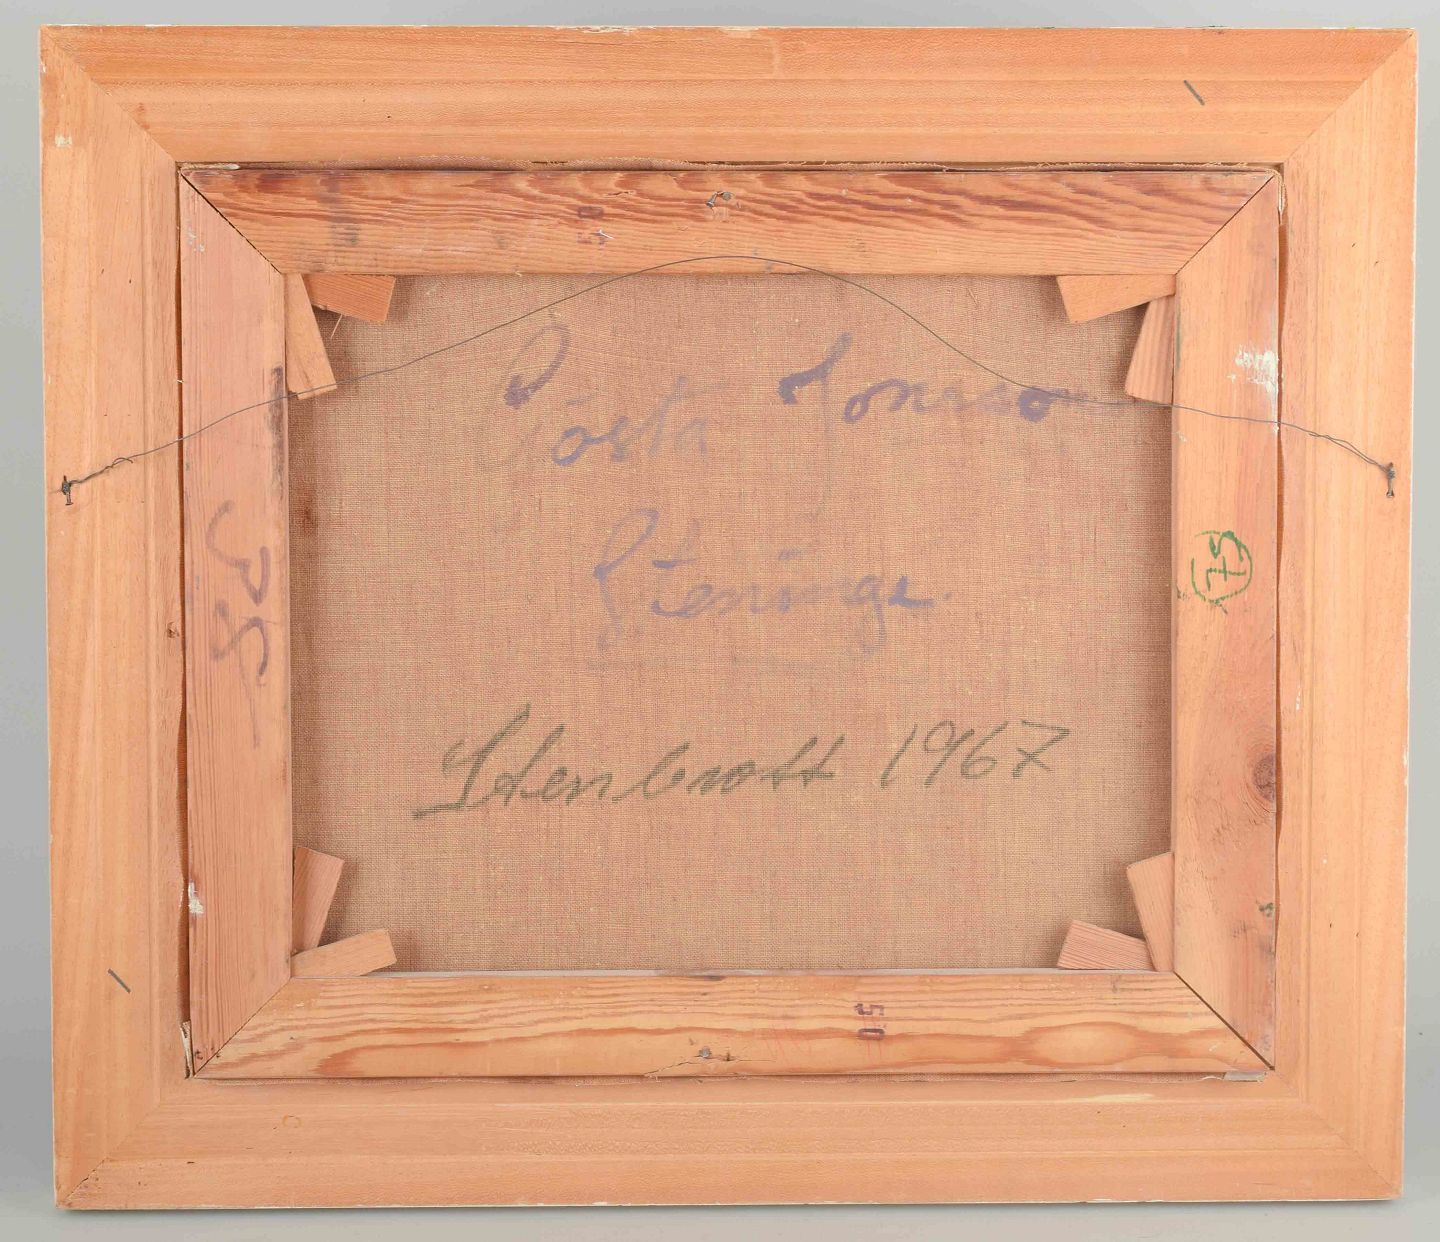 50
Gösta Jonsson
Steninge.
75
Stenbrott 1967
50